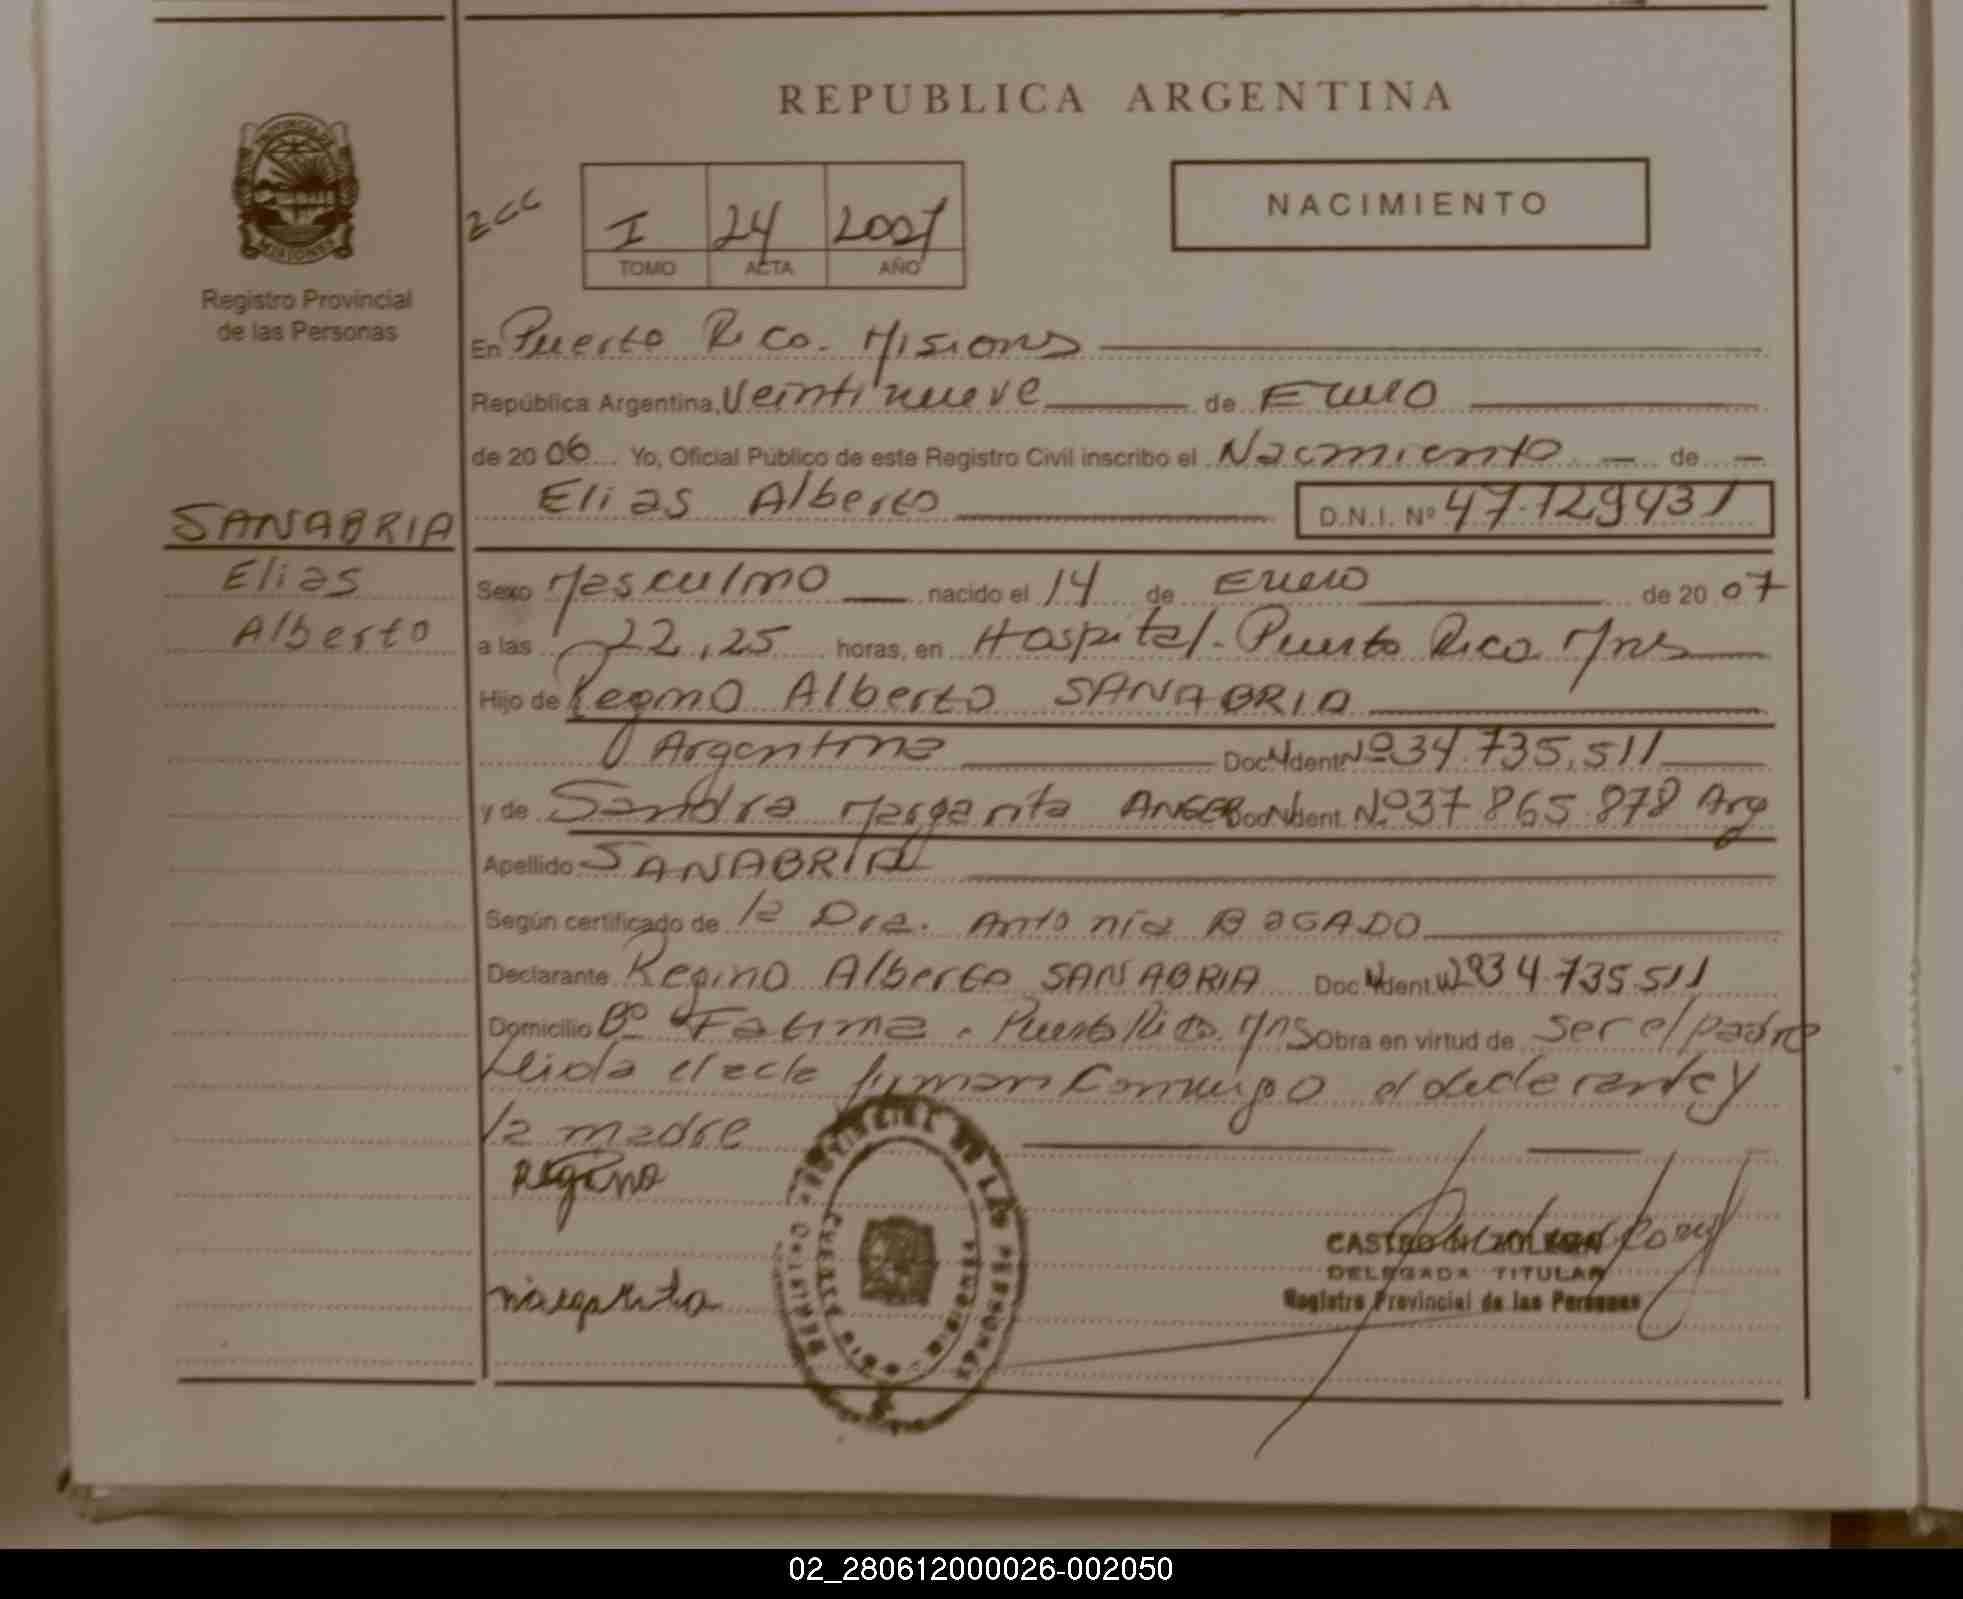 REPUBLICA ARGENTINA
PROVINCIA DE
MISIONES
Registro Provincial
de las Personas
I 24 2007
TOMO ACTA AÑO
NACIMIENTO
En Puerto Rico. Misiones
República Argentina, Veintinueve de Enero
de 2006 Yo, Oficial Público de este Registro Civil inscribo el Nacimiento — de —
Elias Alberto D.N.I. Nº 47.129431
SANABRIA
Elias
Alberto
Sexo Masculino nacido el 14 de Enero de 2007
a las 22,25 horas, en Hospital. Puerto Rico Mnes
Hijo de Regino Alberto SANABRIA
Argentina Doc. Ident. Nº 34.735.511
y de Sandra Margarita Doc. Ident. Nº 37 865.878 Arg
Apellido SANABRIA
Según certificado de la Dra. Antonia BOGADO
Declarante Regino Alberto SANABRIA Doc. Ident. Nº 34.735.511
Domicilio Bº Fatima. Puerto Rico. Mns Obra en virtud de ser el padre
Leida el acta firman conmigo el declarante y
la madre
Regino
margarita
DELEGADA TITULAR
Registro Provincial de las Personas
02_280612000026-002050